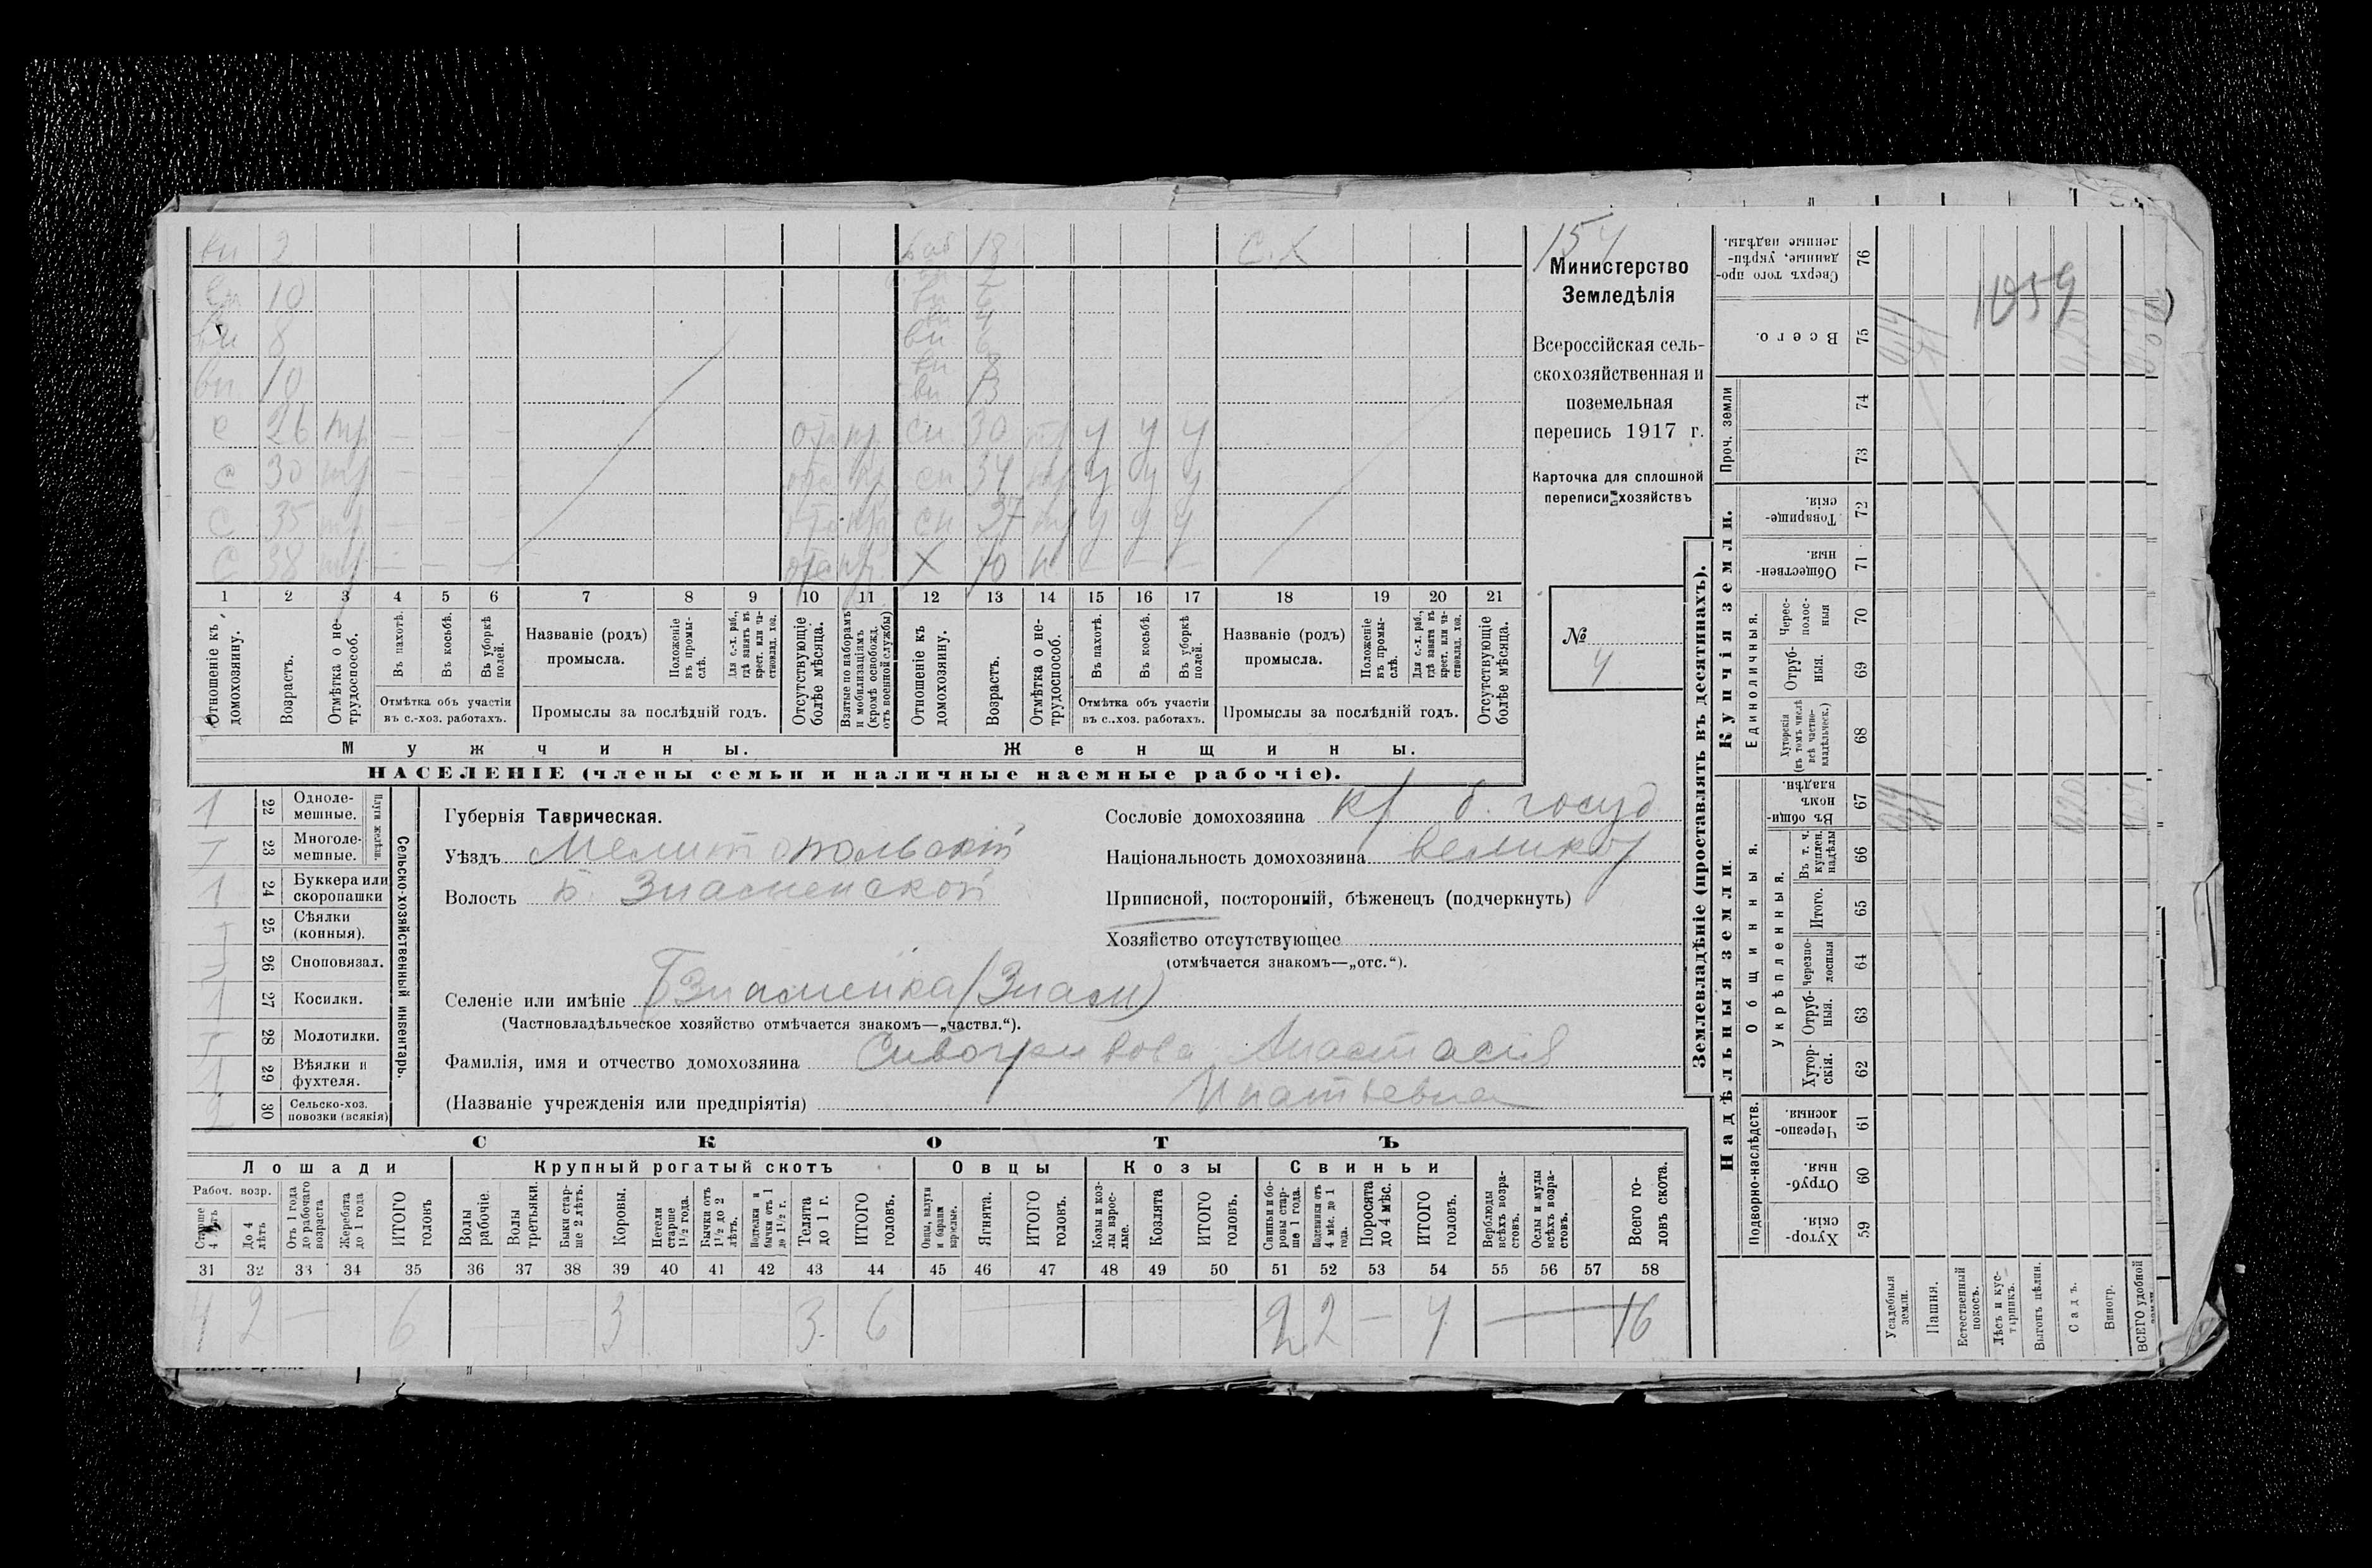 вн 2 баб 18 С.Х
вн 10 вн 6
вн 8 вн 6
вн 10 вн 13
с 26 тр — — — отс пр сн 30 тр у у у
с 30 тр — — — отс пр сн 34 тр у у у
с 35 тр — — — отс пр сн 37 тр у у у
с 38 тр — — — отс пр X 70 н — — —
1 2 3 4 5 6 7 8 9 10 11 12 13 14 15 16 17 18 19 20 21
Отношеніе къ домохозяину.
Возрастъ.
Отмѣтка о нетрудоспособ.
Въ пахотѣ.
Въ косьбѣ.
Въ уборкѣ полей.
Отмѣтка объ участіи
въ с.-хоз. работахъ.
Названіе (родъ)
промысла.
Положеніе въ промыслѣ.
Для с.-х. раб., гдѣ занятъ въ крест. или частновлад. хоз.
Промыслы за послѣдній годъ.
Отсутствующіе болѣе мѣсяца.
Взятые по наборамъ и мобилизаціямъ (кромѣ освобожд. отъ военной службы)
Отношеніе къ домохозяину.
Возрастъ.
Отмѣтка о нетрудоспособ.
Въ пахотѣ.
Въ косьбѣ.
Въ уборкѣ полей.
Отмѣтка объ участіи
въ с..хоз. работахъ.
Названіе (родъ)
промысла.
Положеніе въ промыслѣ.
Для с.-х. раб., гдѣ занята въ крест. или частновлад. хоз.
Промыслы за послѣдній годъ.
Отсутствующіе болѣе мѣсяца.
Мужчины. Женщины.
НАСЕЛЕНІЕ (члены семьи и наличные наемные рабочіе).
154
Министерство
Земледѣлія
Всероссійская сель-
скохозяйственная и
поземельная
перепись 1917 г.
Карточка для сплошной
переписи хозяйствъ
№
4
1 22 Одноле-
мешные.
23 Многоле-
мешные.
Плуги желѣзн.
1 24 Буккера или
скоропашки
25 Сѣялки
(конныя).
26 Сноповязал.
1 27 Косилки.
28 Молотилки.
1 29 Вѣялки и
фухтеля.
2 30 Сельско-хоз.
повозки (всякія)
Сельско-хозяйственный инвентарь.
Губернія Таврическая.
Уѣздъ Мелитопольскій
Волость Б. Знаменской
Сословіе домохозяина кр б. госуд
Національность домохозяина великор
Приписной, посторонній, бѣженецъ (подчеркнуть)
Хозяйство отсутствующее
(отмѣчается знакомъ—„отс.“).
Селеніе или имѣніе Б Знаменка (Знам)
(Частновладѣльческое хозяйство отмѣчается знакомъ—„частвл.“).
Фамилія, имя и отчество домохозяина Сивогривова Анастасія
(Названіе учрежденія или предпріятія) Игнатьевна
СКОТЪ
Лошади Крупный рогатый скотъ Овцы Козы Свиньи
Рабоч. возр.
Старше 4 лѣтъ
До 4 лѣтъ
Отъ 1 года до рабочаго возраста
Жеребята до 1 года
ИТОГО головъ
Волы рабочіе.
Волы третьяки.
Быки старше 2 лѣтъ.
Коровы.
Нетели старше 1½ года.
Бычки отъ 1½ до 2 лѣтъ.
Подтелки и бычки отъ 1 до 1½ г.
Телята до 1 г.
ИТОГО головъ.
Овцы, валухи и бараны взрослые.
Ягнята.
ИТОГО головъ.
Козы и козлы взрослые.
Козлята
ИТОГО головъ.
Свиньи и боровы старше 1 года.
Подсвинки отъ 4 мѣс. до 1 года.
Поросята до 4 мѣс.
ИТОГО головъ.
Верблюды всѣхъ возрастовъ.
Ослы и мулы всѣхъ возрастовъ.
Всего головъ скота.
31 32 33 34 35 36 37 38 39 40 41 42 43 44 45 46 47 48 49 50 51 52 53 54 55 56 57 58
4 2 — 6 — — 3 3 6 — — 2 2 — 4 — 16
Землевладѣніе (проставлять въ десятинахъ).
Купчія земли.
Надѣльныя земли.
Сверхъ того проданные, укрѣпленные надѣлы. 76
Всего. 75
Проч. земли 74 73
Товарищескія. 72
Общественныя. 71
Единоличныя.
Чересполосныя 70
Отрубныя. 69
Хуторскія (въ томъ числѣ всѣ частновладѣльческ.) 68
Общинныя.
Въ общинномъ владѣн. 67
Укрѣпленныя.
Въ т. ч. куплен. надѣлы 66
Итого. 65
Черезполосныя 64
Отрубныя. 63
Хуторскія. 62
Подворно-наслѣдств.
Черезполосныя. 61
Отрубныя. 60
Хуторскія. 59
1059
Усадебныя земли.
Пашня.
Естественный покосъ.
Лѣсъ и кустарникъ.
Выгонъ цѣлин.
Садъ.
Виногр.
ВСЕГО удобной